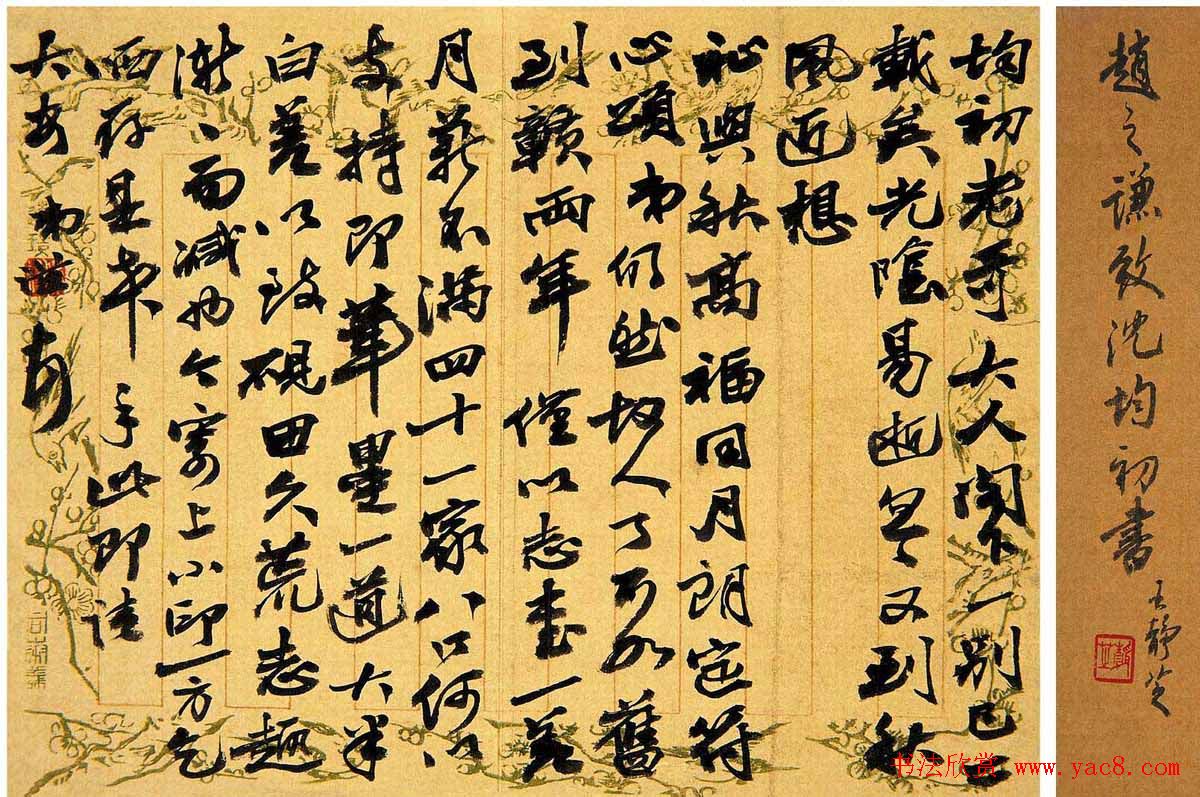 均初老哥大人閣下一別已三
載矣光陰易逝忽又到秋
風近想
祉與秋高福同月朗定符
心頌弟仍然故人了不如舊
到贛兩年僅以志書一差
月薪不滿四十一家八口何以
支持即筆墨一道大半
白差以致硯田久荒志趣
漸漸而減也今寄上小印一方乞
哂存是幸手此即請
大安弟謙頓
趙之謙致沈均初書
王靜芝
书法欣赏 www.yac8.com